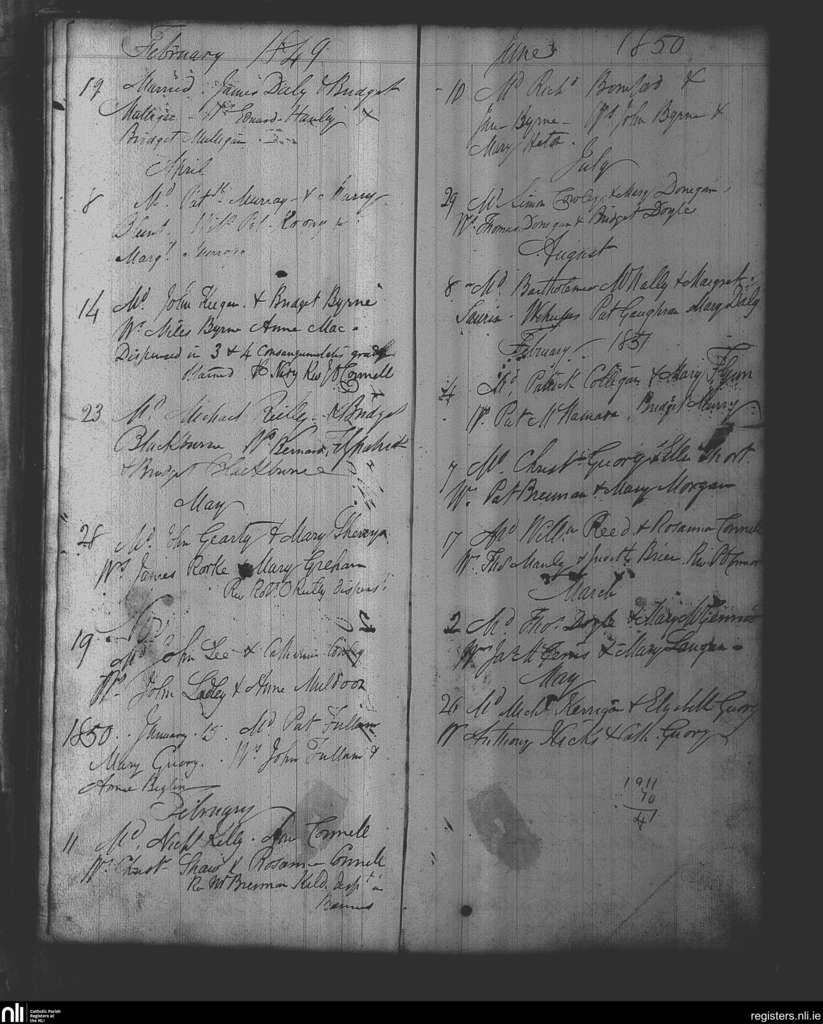 February 1849
19 Married James Daly & Bridget
Mulligan - Ws Edward Hanly &
Bridget Mulligan
April
8 Md Patk Murray &
Hunt Wits Pat Roony &
Margt
14 Md John Keegan & Bridget Byrne
Ws Miles Byrne Anne Mac
Dispensed in 3 & 4 Consanguinitatis gradu
obtained Revd O Connell
23 Md Michael Reilly & Bridget
Blackburne Ws Bernard Fitzpatrick
& Bridget Blackburne
May
28 Md John Gearty & Mary
Ws James Rorke & Mary Greham
Rev Robt O Reilly dispenst
19 Md John Lee & Catherine
Ws John Ladley & Anne Muldoon
1850 January 15 Md Pat Fullam
Mary Guory Ws John Fullam &
Anne Beglin
February
11 Md Nichs Kelly Connell
Ws Christ Shaw & Rosanna Connell
Rev Mr Brennan Kild. dispt in
Banns
June 1850
10 Md Richd Bomford &
Jane Byrne - Ws John Byrne &
Mary
July
29 Md Simon Cowley & Mary Donegan
Ws Thomas Donegan & Bridget Doyle
August
8 Md Bartholomew McNally & Margret
Witnesses Pat Gaughran Mary Daly
February 1851
4 Md Patrick Colligan & Mary Flynn
Ws Pat McNamara Bridget Murry
7 Md Christ Guory & Ellen Short
Ws Pat Brennan & Mary Morgan
17 Md Willm Reed & Rosanna Connell
Ws Thos Manly & Judith Brien Rev P O Connor
March
2 Md Thos Doyle & Mary McGinnis
Ws Jas McGinnis & Mary Langan
May
26 Md Michl Kerrigan & Elizabeth Guory
Ws Anthony Hicks & Cath Guory
1911
70
41
nli
Catholic Parish
Registers at
the NLI
registers.nli.ie